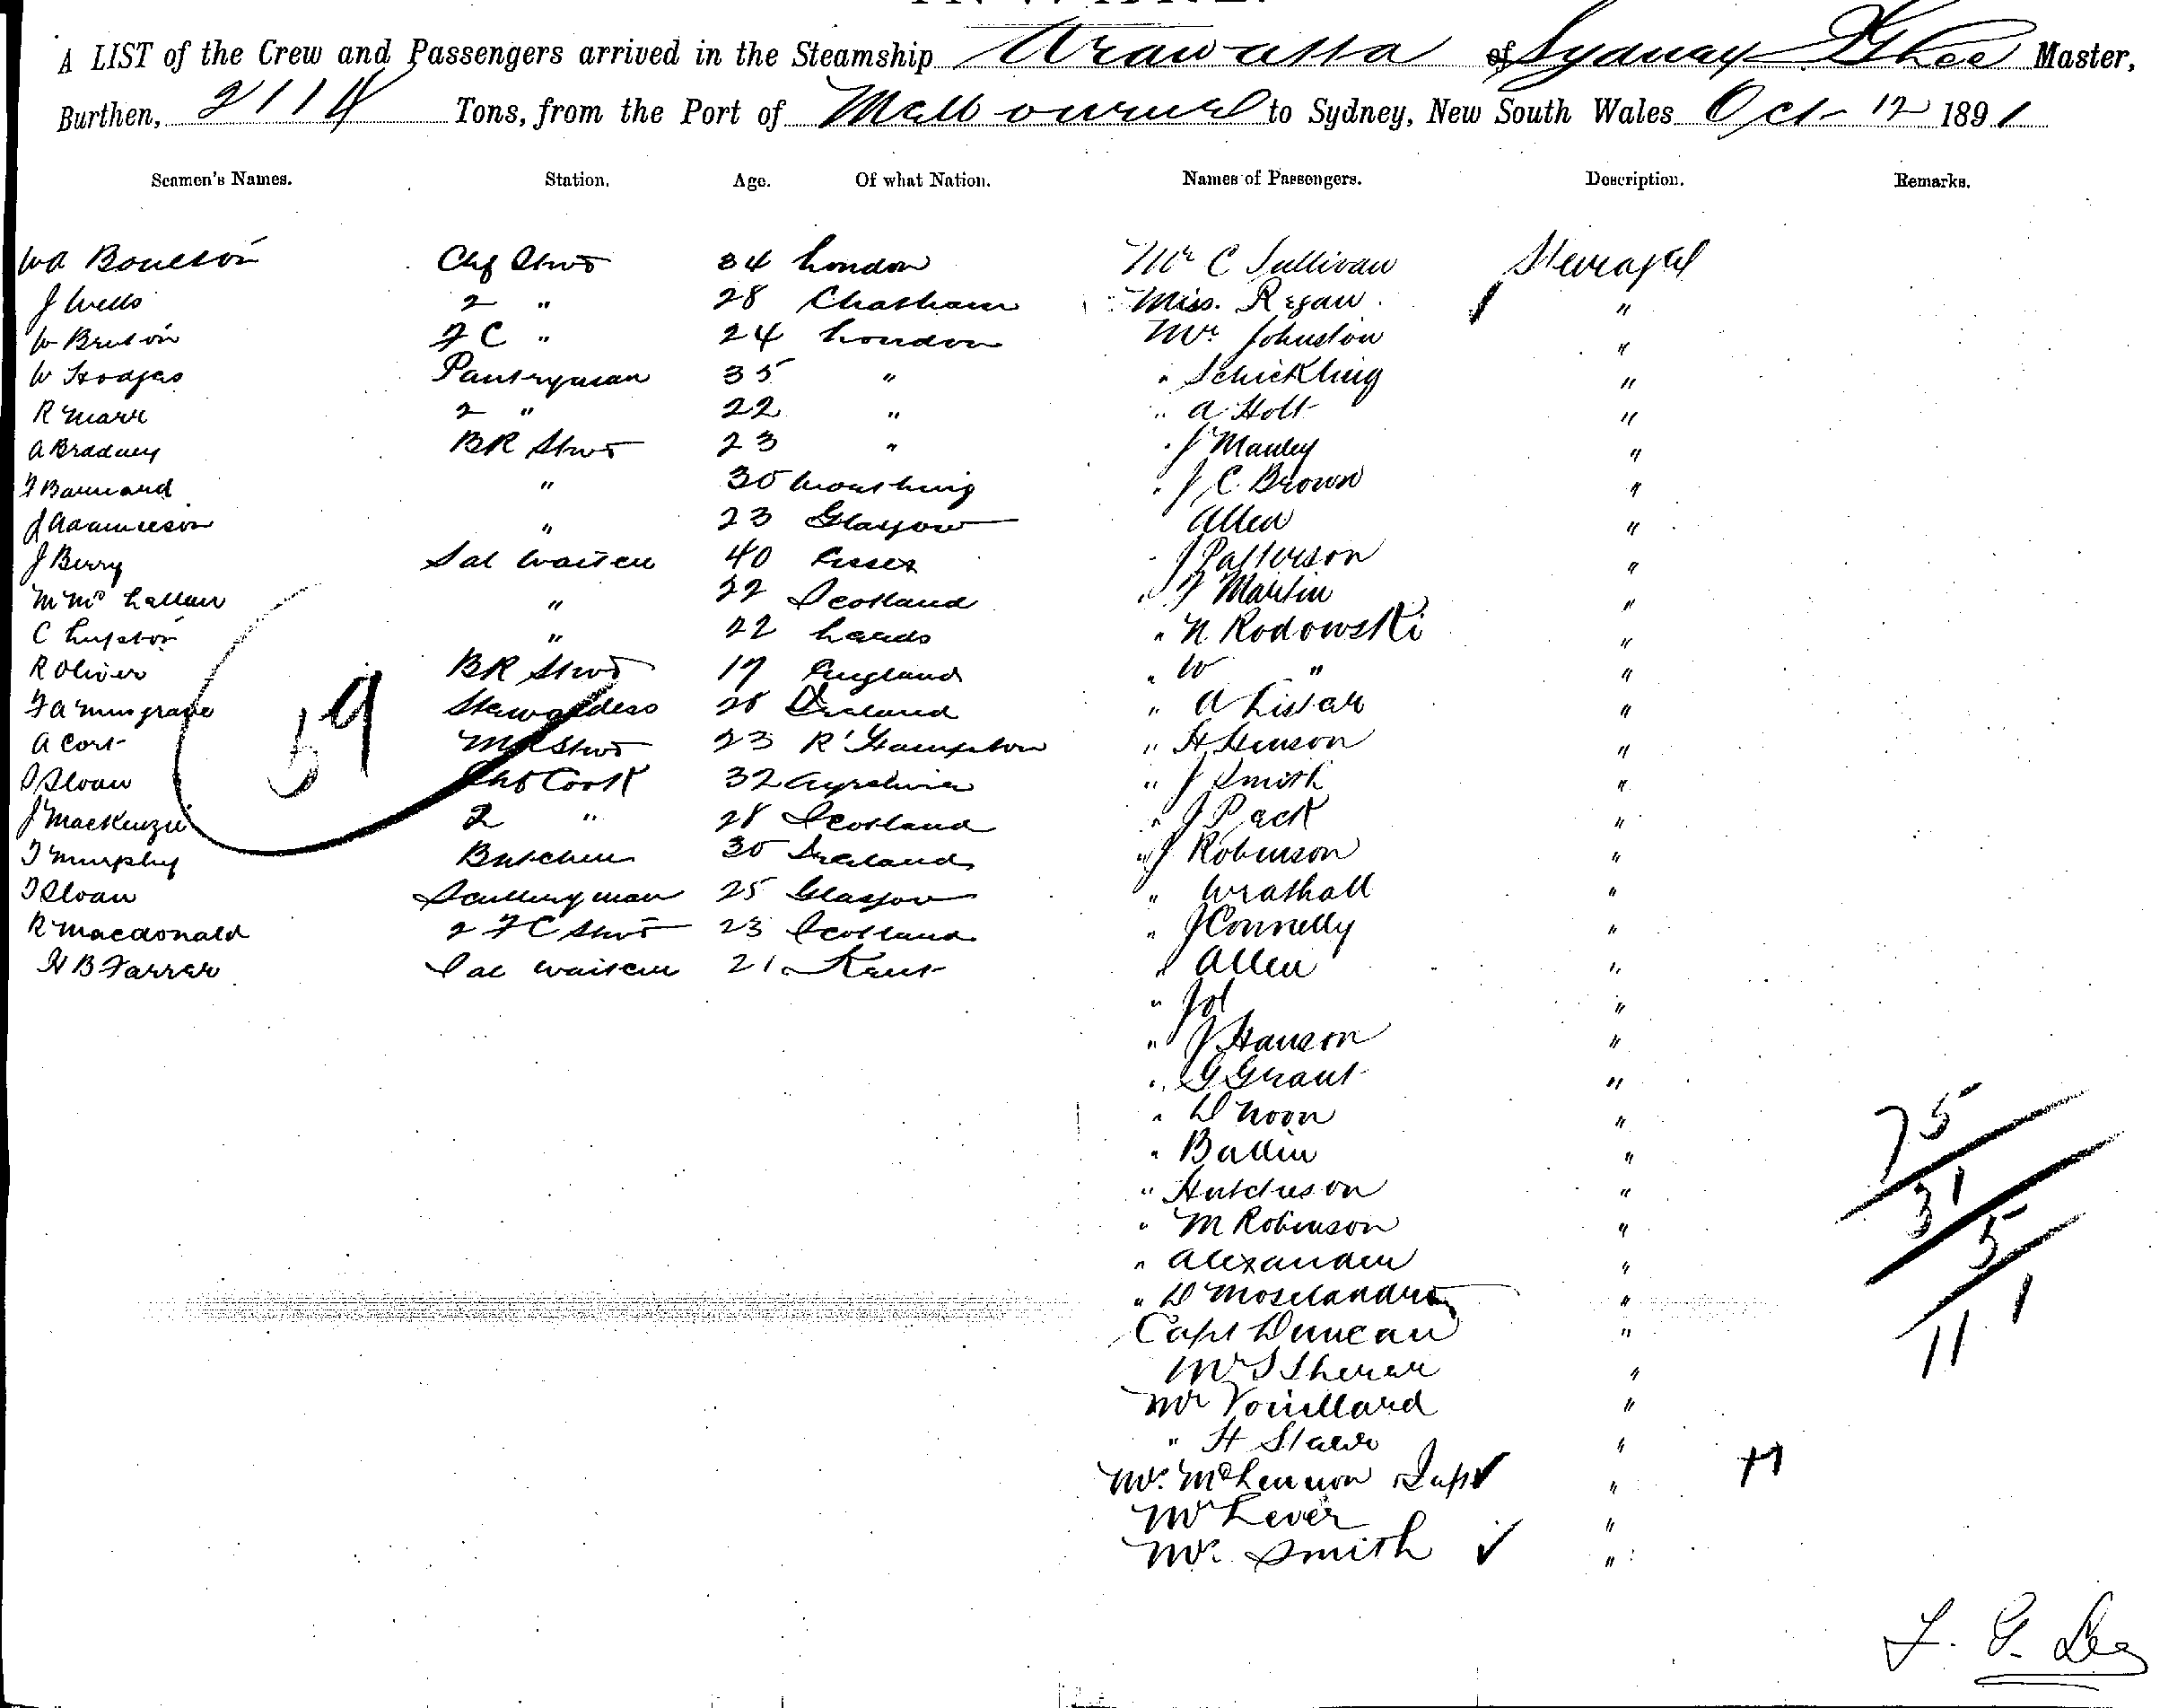 A LIST of the Crew and Passengers arrived in the Steamship Arawatta of Sydney Master,
Burthen, 2114 Tons, from the Port of Melbourne to Sydney, New South Wales Oct 12 1891
Seamen's Names. Station. Age. Of what Nation. Names of Passengers. Description. Remarks.
WA Boulton Chf Stwd 34 London Mr C Sullivan Steerage
J Wells 2 " 28 Chatham Miss. Regan "
W Bruton F C " 24 London Mr Johnston "
W Hodges Pantryman 35 " " Schickling "
R Marr 2 " 22 " " A Holt "
A Bradney BR Stwd 23 " " J Manley "
F Barnard " 30 Worthing " J C Brown "
J Adamson " 23 Glasgow Allen "
J Berry Sal Waiter 40 Essex " J Patterson "
M Mc Lallan " 22 Scotland " F Martin "
C Lupton " 22 Leeds " N Rodowski "
R Oliver BR Stwd 17 England " W " "
F A Musgrave Stewardess 28 Ireland " A Lissar "
A Cort MR Stwd 23 R'Hampton " H Henson "
Sloan Chf Cook 32 Ayrshire " J Smith "
J MacKenzie 2 " 28 Scotland " J Pack "
T Murphy Butcher 30 Ireland " J Robinson "
T Sloan Scullery man 25 Glasgow " Wrathall "
R Macdonald 2 F C Stwd 23 Scotland " J Connelly "
H B Farrer Sal Waiter 21 Kent " Allen "
59
" "
" J Hanson "
" G Grant "
" D Noon "
" Ballin "
" Hutcheson "
" M Robinson "
" Alexander "
" D "
Capt Duncan "
Mr S Sherar "
Mr Vouillard "
" H "
Mr. McLennon Supt "
Mr Lever "
Mr. Smith "
75
31
5
1
11